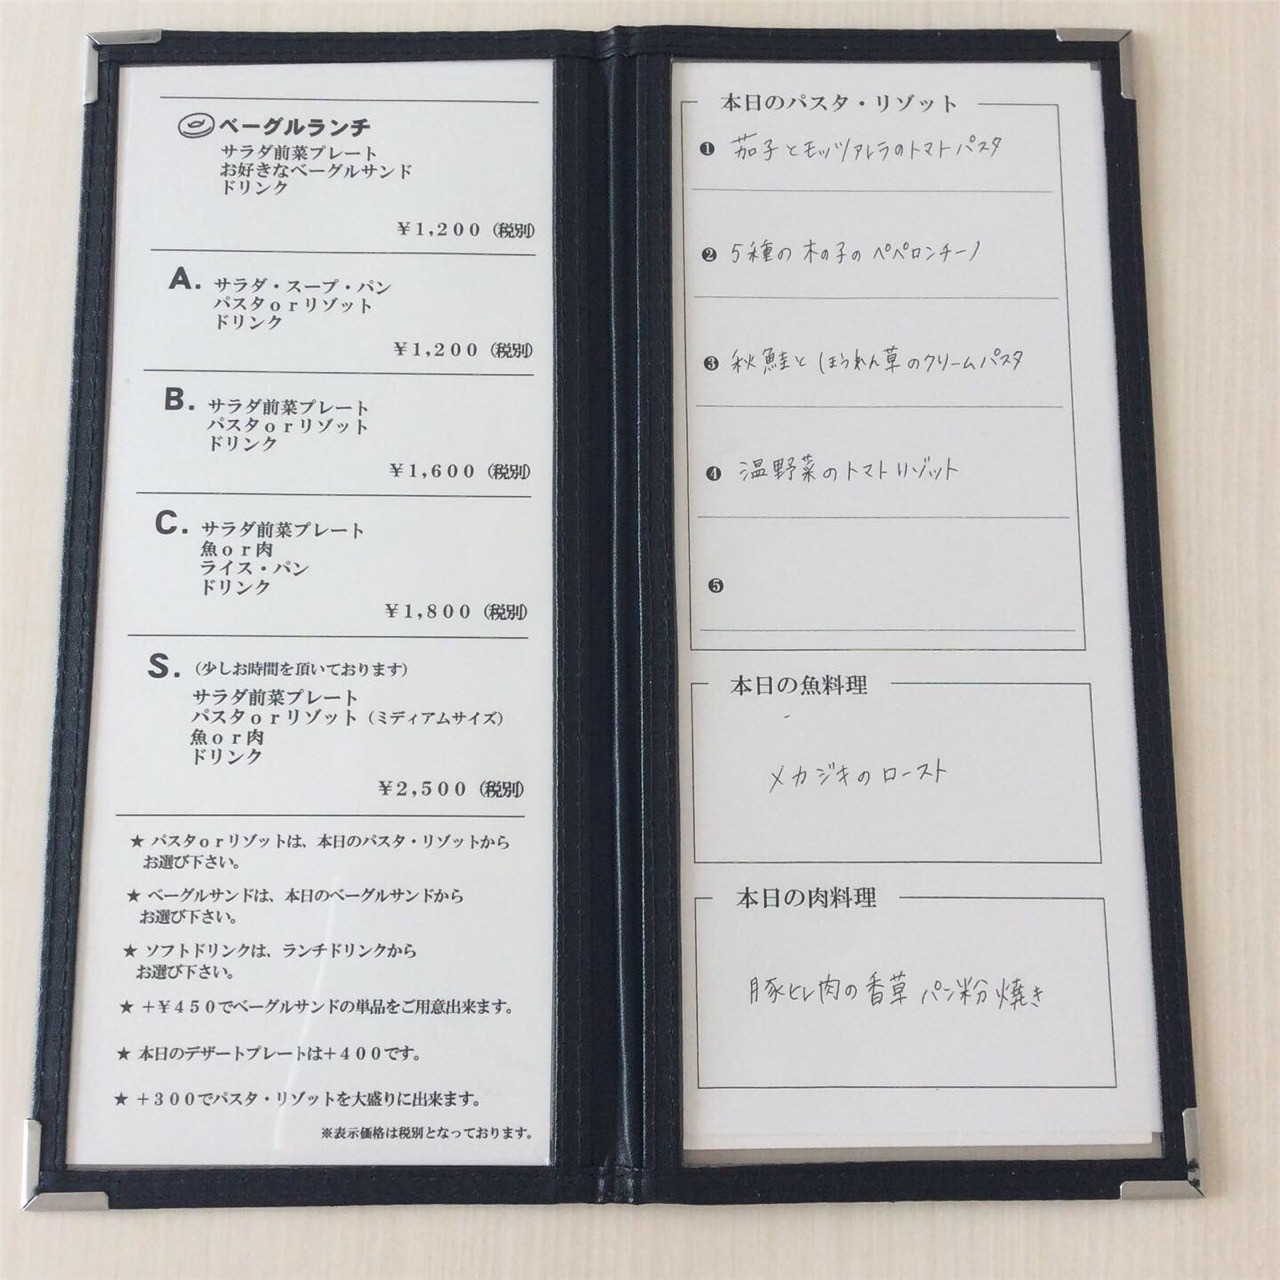 ベーグルランチ
サラダ前菜プレート
お好きなベーグルサンド
ドリンク
￥1,200（税別）
A.
サラダ・スープ・パン
パスタorリゾット
ドリンク
￥1,200（税別）
B.
サラダ前菜プレート
パスタorリゾット
ドリンク
￥1,600（税別）
C.
サラダ前菜プレート
魚or肉
ライス・パン
ドリンク
￥1,800（税別）
S.（少しお時間を頂いております）
サラダ前菜プレート
パスタorリゾット（ミディアムサイズ）
魚or肉
ドリンク
￥2,500（税別）
★ パスタorリゾットは、本日のパスタ・リゾットから
お選び下さい。
★ ベーグルサンドは、本日のベーグルサンドから
お選び下さい。
★ ソフトドリンクは、ランチドリンクから
お選び下さい。
★ ＋￥450でベーグルサンドの単品をご用意出来ます。
★ 本日のデザートプレートは＋400です。
★ ＋300でパスタ・リゾットを大盛りに出来ます。
※表示価格は税別となっております。
本日のパスタ・リゾット
❶ 茄子とモッツァレラのトマトパスタ
❷ 5種の木の子のペペロンチーノ
❸ 秋鮭とほうれん草のクリームパスタ
❹ 温野菜のトマトリゾット
❺
本日の魚料理
メカジキのロースト
本日の肉料理
豚ヒレ肉の香草パン粉焼き